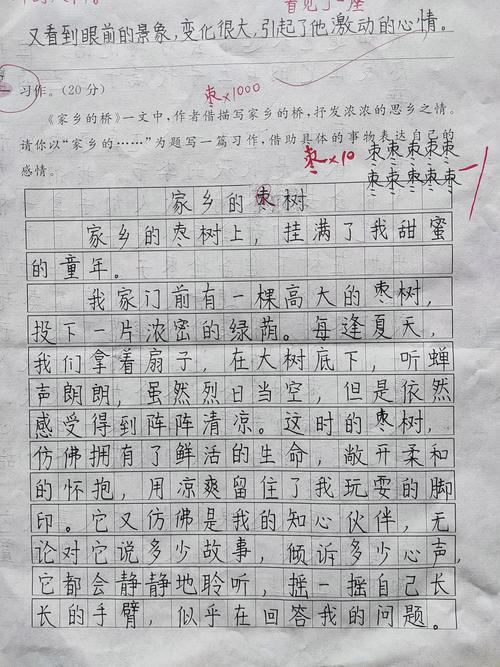 看见了一座
又看到眼前的景象,变化很大,引起了他激动的心情。
习作。(20分)
枣×1000
《家乡的桥》一文中,作者借描写家乡的桥,抒发浓浓的思乡之情。
请你以“家乡的……”为题写一篇习作,借助具体的事物表达自己的
感情。
枣×10
枣枣枣枣枣
枣枣枣枣枣
-1
家乡的枣树
家乡的枣树上,挂满了我甜蜜
的童年。
我家门前有一棵高大的枣树,
投下一片浓密的绿荫。每逢夏天,
我们拿着扇子,在大树底下,听蝉
声朗朗,虽然烈日当空,但是依然
感受得到阵阵清凉。这时的枣树,
仿佛拥有了鲜活的生命,敞开柔和
的怀抱,用凉爽留住了我玩耍的脚
印。它又仿佛是我的知心伙伴,无
论对它说多少故事,倾诉多少心声,
它都会静静地聆听,摇一摇自己长
长的手臂,似乎在回答我的问题。